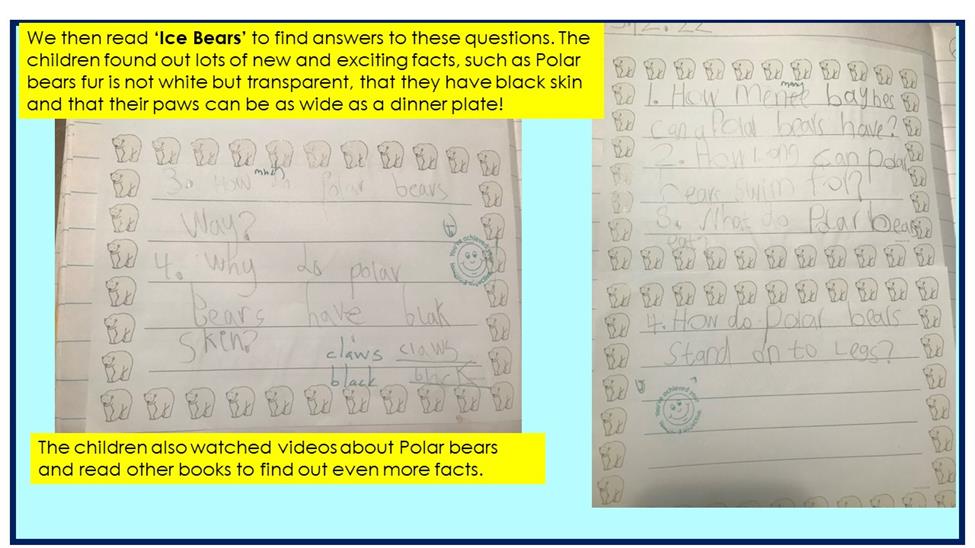 We then read ‘Ice Bears’ to find answers to these questions. The
children found out lots of new and exciting facts, such as Polar
bears fur is not white but transparent, that they have black skin
and that their paws can be as wide as a dinner plate!
3. How polar bears
Way?
4. Why do polar
Bears have blak
Skin?
claws claws
black black
You've achieved your
The children also watched videos about Polar bears
and read other books to find out even more facts.
2.22
many
1. How Mentee baybes
can a Polar bears have?
2. How Long can polar
bears swim for?
3. What do Polar bears
eat?
4. How do polar bears
Stand on to Legs?
You've achieved your